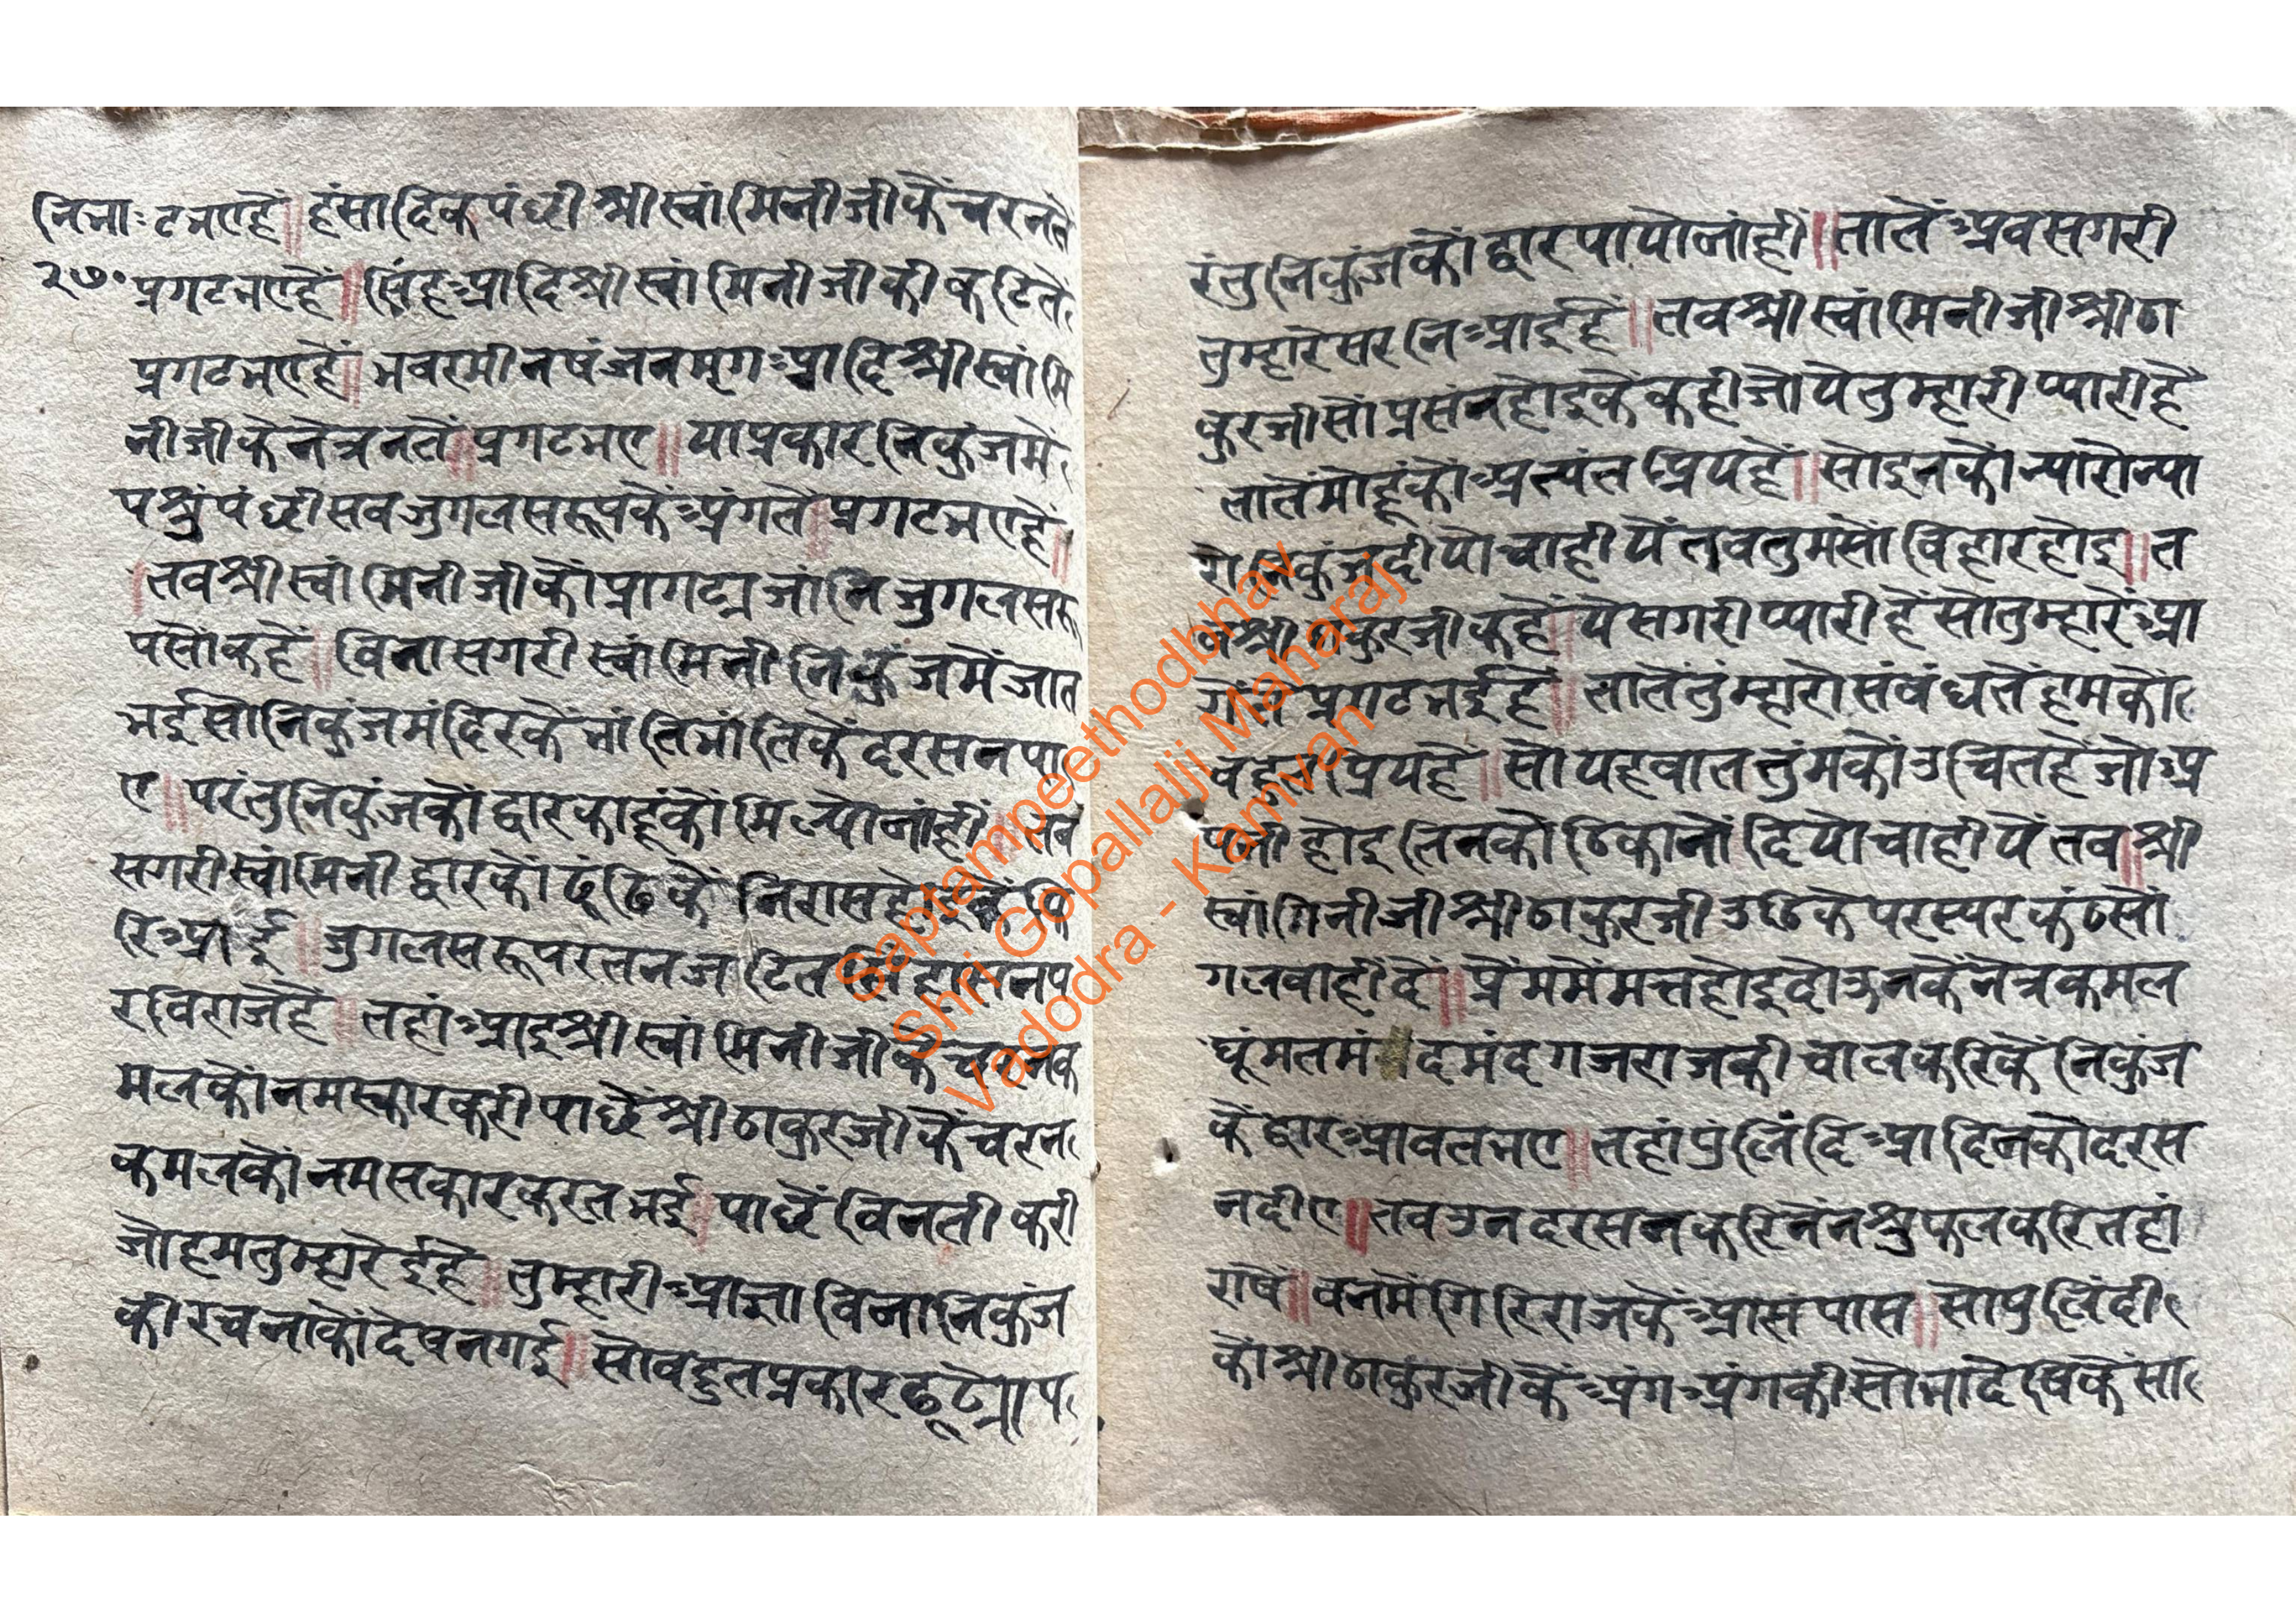 निभाः टभएहें॥ हंसादिक पंछी श्रीस्वांमिनीजीकें चरनतें
२७० प्रगटभएहें॥ सिंहआदि श्रीस्वांमिनीजीकी कटितें
प्रगटभएहें॥ भवरमीनषंजनमृगआदि श्रीस्वांमि
नीजीके नेत्रनतें॥ प्रगटभए॥ याप्रकार निकुंजमें
पशुंपंछी सवजुगलसरूपकें अंगतें॥ प्रगटभएहें॥
तवश्रीस्वांमिनीजीकों प्रागट्य जांनि जुगलसरू
पसोंकहें॥ विनासगरी स्वांमिनी निकुंजमेंजात
भईसोनिकुंजमंदिरकें भांतिभांतिकें दरसनपा
ए॥ परंतुनिकुंजकों द्वारकाहूंकों मिल्योनांहीं॥ तव
सगरीस्वांमिनी द्वारकों ढूंढिकें निरासहोइकें फि
रिआई॥ जुगलसरूपरतनजटितसिंहासनप
रविराजेहें॥ तहांआइश्रीस्वांमिनीजीकें चरनक
मलकोंनमस्कारकरी पाछेंश्रीठाकुरजीकें चरन
कमलकों नमसकारकरतभई॥ पाछें विनती करी
जोहमतुम्हारेईहै॥ तुम्हारीआज्ञाविनानिकुंज
कीरचनाकोंदेषनगई॥ सोवहुतप्रकारढूंढ्योप
रंतुनिकुंजकों द्वारपायोनांहीं॥ तातेंअवसगरी
तुम्हारेसरनिआईहें॥ तवश्रीस्वांमिनीजीश्रीठा
कुरजीसोंप्रसंनहोइकें कहीजोयेतुम्हारीप्यारीहै
तातेंमोहूंकोंअत्यंत प्रियहें॥ सोइनकोंन्यारोन्या
रोनिकुंजदीयोचाहीयें तवतुमसोंविहारहोइ॥ त
वश्रीठाकुरजीकहें॥ येसगरीप्यारीहेंसोतुम्हारेंअं
गतेंप्रगटभईहें॥ तातेंतुंम्हारोसंवंधतेंहमकों
वहुतप्रियहें॥ सोयहवाततुंमकोंउचितहेंजोअ
पनीहोइ तिनकोंठिकानोंदियोचाहीयें तव॥ श्री
स्वांमिनीजीश्रीठाकुरजीउठिकेंपरस्परकंठसों
गलवाहींदें॥ प्रेंममेंमत्तहोइदोऊनकेंनेत्रकमल
घूंमतमंदमंदगजराजकीचालकरिकें निकुंज
केंद्वारआवतभए॥ तहांपुलिंदिआदिनकोंदरस
नदीए॥ तवउनदरसनकरिनेंनश्रुफलकरितहां
राषे॥ वनमेंगिरिराजकेंआसपास॥ सोपुलिंदी
कोंश्रीठाकुरजीकेंअंगअंगकीसोभादेषिकेंसा
Saptampeethodbhav
Shri Gopallalji Maharaj
Vadodra - Kamvan